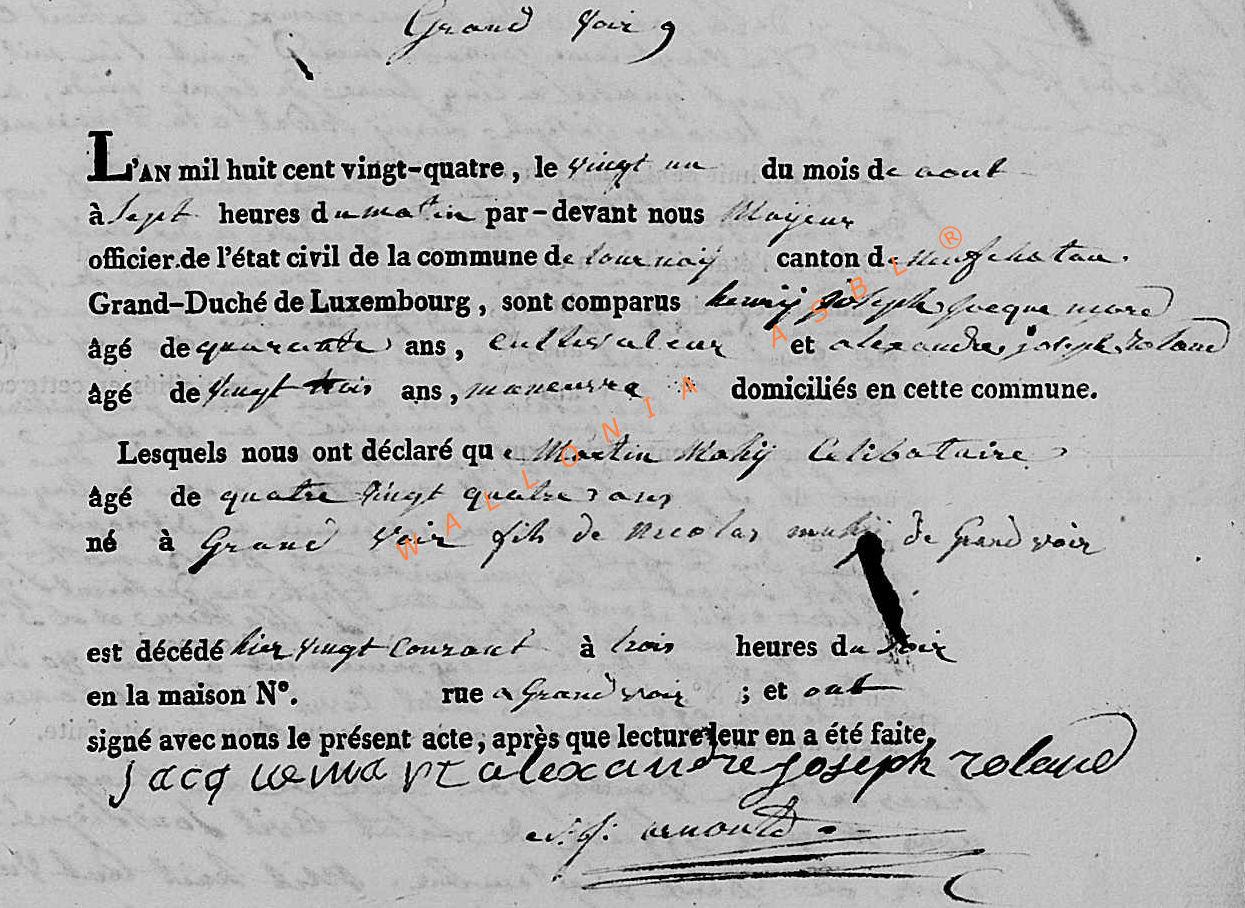 Grand Voir
L'AN mil huit cent vingt-quatre, le vingt un du mois de aout
à sept heures du matin par-devant nous Mayeur
officier de l'état civil de la commune de tournay canton de neufchatau.
Grand-Duché de Luxembourg, sont comparus henrij joseph jacque mare
âgé de quarante ans, cultivateur et alexandre joseph roland
âgé de vingt trois ans, maneuvre domiciliés en cette commune.
Lesquels nous ont déclaré que Martin Mahij Celibataire
âgé de quatre vingt quatre ans
né à Grand Voir fils de nicolas mahij de Grand voir
est décédé hier vingt courant à trois heures du soir
en la maison N°. rue a Grand voir ; et ont
signé avec nous le présent acte, après que lecture leur en a été faite.
jacquemart alexandre joseph roland
arnould
WALLONIA ASBL ®